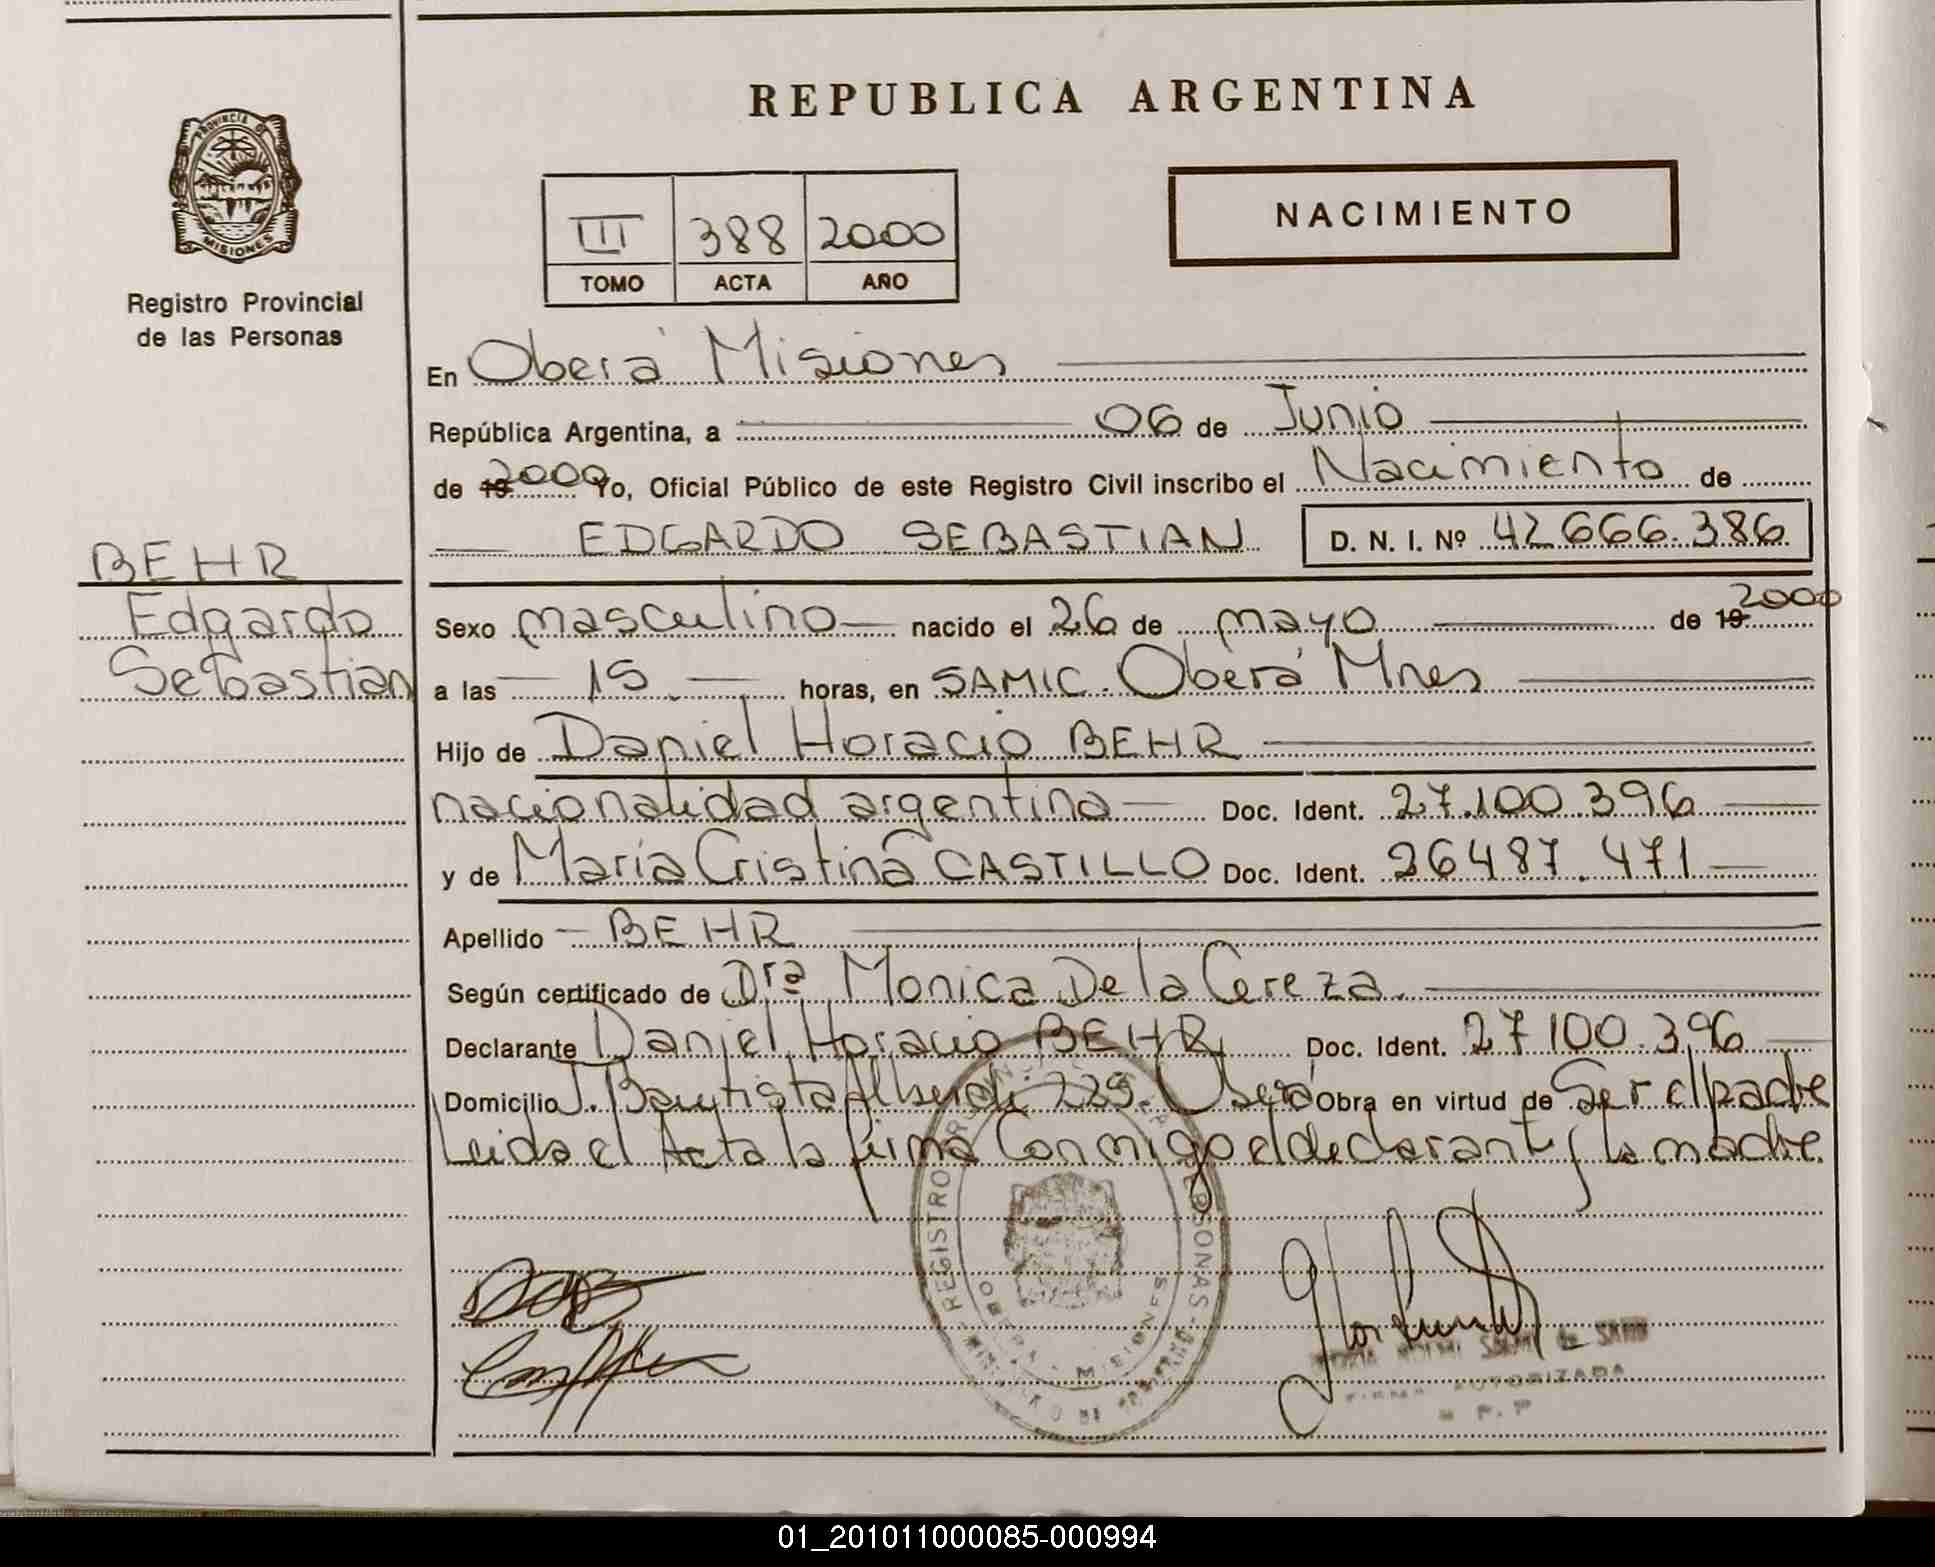 REPUBLICA ARGENTINA
PROVINCIA DE
MISIONES
Registro Provincial
de las Personas
III 388 2000
TOMO ACTA AÑO
NACIMIENTO
En Oberá Misiones
República Argentina, a 06 de Junio
de 19 2000 Yo, Oficial Público de este Registro Civil inscribo el Nacimiento de
EDGARDO SEBASTIAN D. N. I. Nº 42.666.386
BEHR
Edgardo
Sebastian
Sexo masculino nacido el 26 de mayo de 19 2000
a las 15 horas, en SAMIC. Oberá Mnes
Hijo de Daniel Horacio BEHR
nacionalidad argentina Doc. Ident. 27.100.396
y de María Cristina CASTILLO Doc. Ident. 26487.471
Apellido BEHR
Según certificado de Drª Monica De la Cereza.
Declarante Daniel Horacio BEHR Doc. Ident. 27100.396
Domicilio J. Bautista Alberdi 225. Oberá Obra en virtud de Ser el padre
Leida el Acta la firma Conmigo el declarante y la madre.
REGISTRO PERSONAS
OBERA - MISIONES
FIRMA AUTORIZADA
R. P. P
01_201011000085-000994